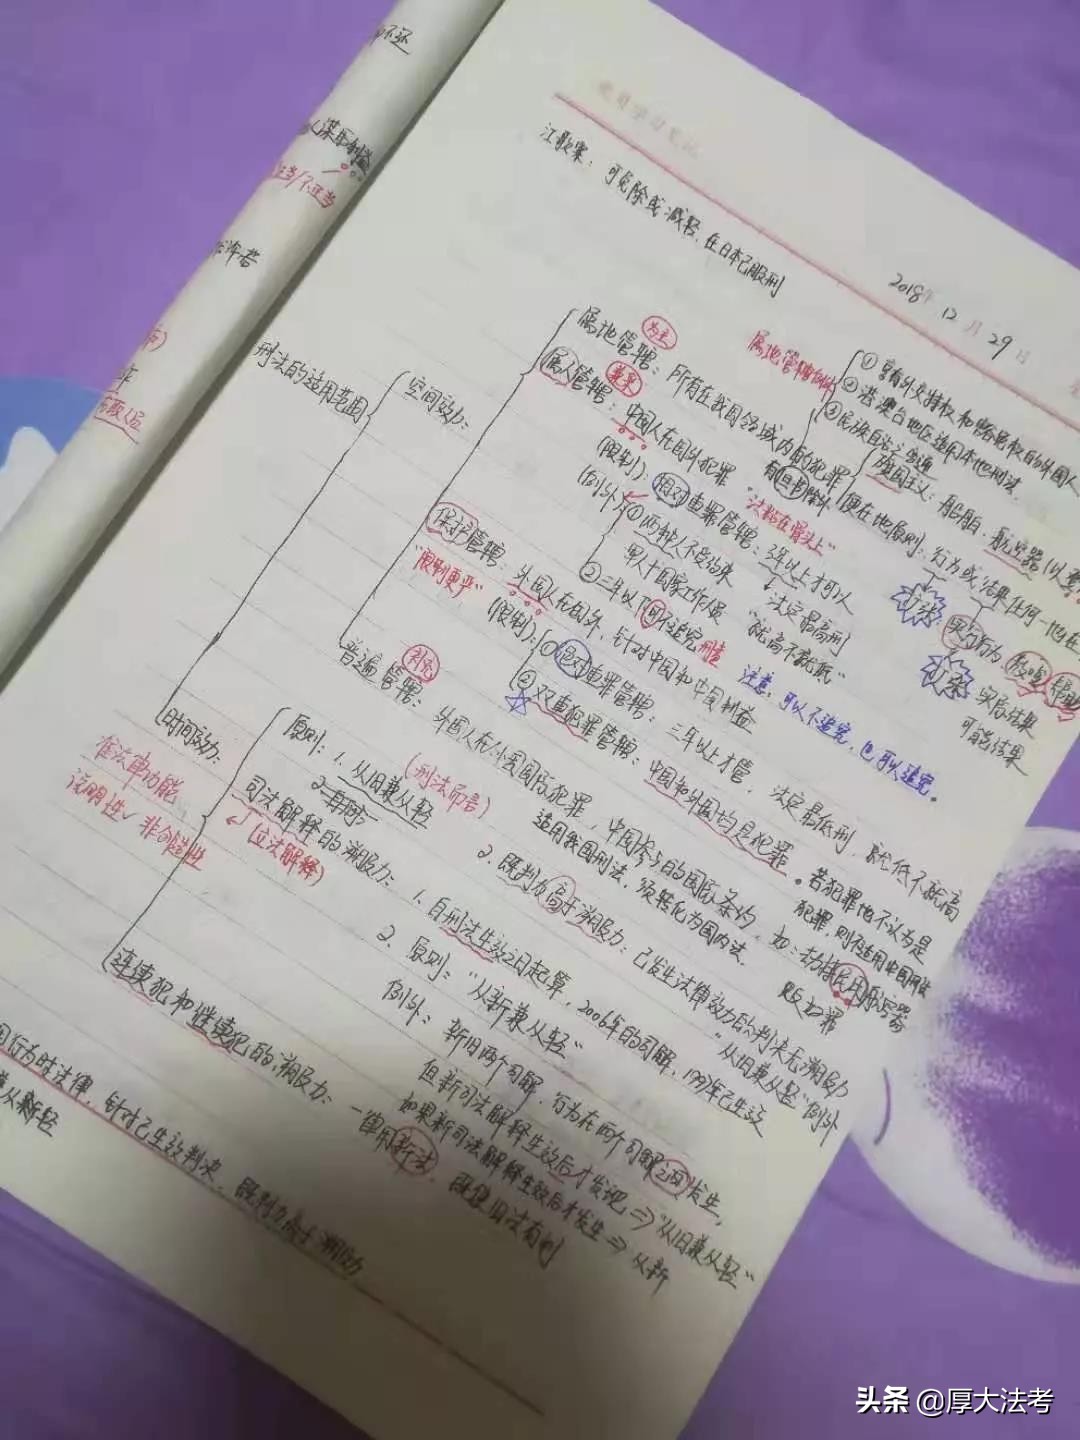 党员学习笔记
江歌案：可免除或减轻，在日本已服刑
2018年12月29日
刑法的适用范围
空间效力：
属地管辖：所有在我国领域内的犯罪
为主
有但书除外
属地管辖例外
①享有外交特权和豁免权的外国人
②港澳台地区适用本地刑法
③民族自治变通
旗国主义：船舶、航空器
属人管辖：中国人在国外犯罪
兼采
"法粘在骨头上"
(限制)：相对重罪管辖：3年以上才可以
法定最高刑
"就高不就低"
(例外)①两种人不受约束
军人+国家工作人员
②三年以下可不追究
注意，可以不追究，也可以追究。
行为或结果任何一地在
实行行为 教唆 帮助
实际结果
可能结果
保护管辖：外国人在国外，针对中国和中国利益
"限制更严"
(限制)：①绝对重罪管辖：三年以上才管，法定最低刑，就低不就高
②双重犯罪管辖：中国和外国均是犯罪。若犯罪地不认为是
犯罪，则不适用中国刑法
普遍管辖：外国人在外国国际犯罪，中国参与的国际条约，如：劫持民用航空器
补充
适用我国刑法，须转化为国内法。
贩卖和罪
时间效力：
原则：1.从旧兼从轻
(刑法而言)
2.既判力高于溯及力：已发生法律效力的判决无溯及力
"从旧兼从轻"例外
司法解释的溯及力：1.自刑法生效之日起算，2006年的司解，1997年已生效
(立法解释)
准法律功能
说明性✓非创造性
2.原则："从新兼从轻"
例外：新旧两个司解，行为在两个司解之间发生，
但新司法解释生效后才发现⇒"从旧兼从轻"
如果新司法解释生效后才发生⇒从新
连续犯和继续犯的溯及力：一律用新法，既使旧法有利
行为时法律，针对已生效判决，既判力高于溯及力
从新轻
谋取利益
正当/不正当
许诺
头条 @厚大法考